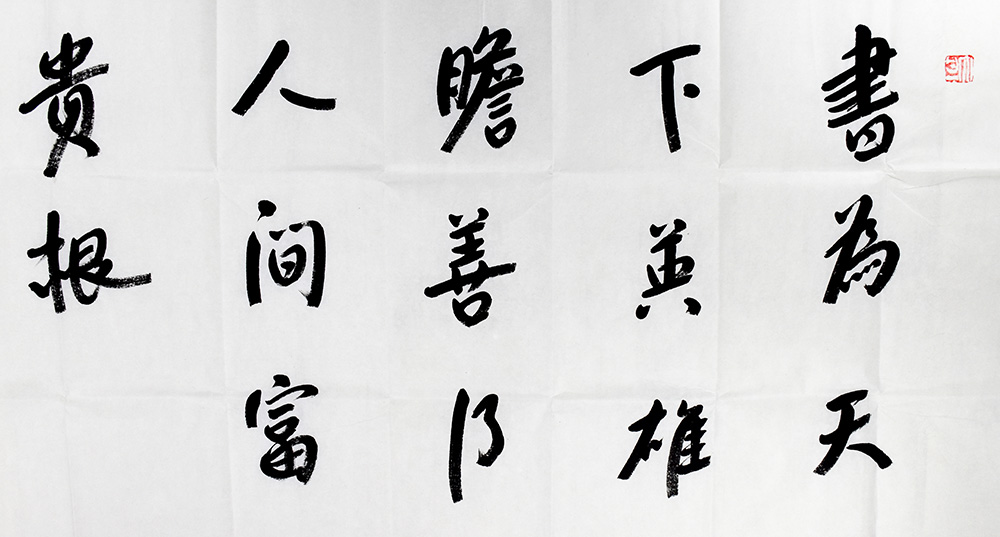 書為天
下英雄
膽善行
人間富
貴根